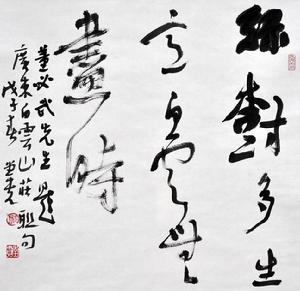 綠樹多生
意白雲無
盡時
董必武先生題
廣東白雲山莊聯句
戊子春